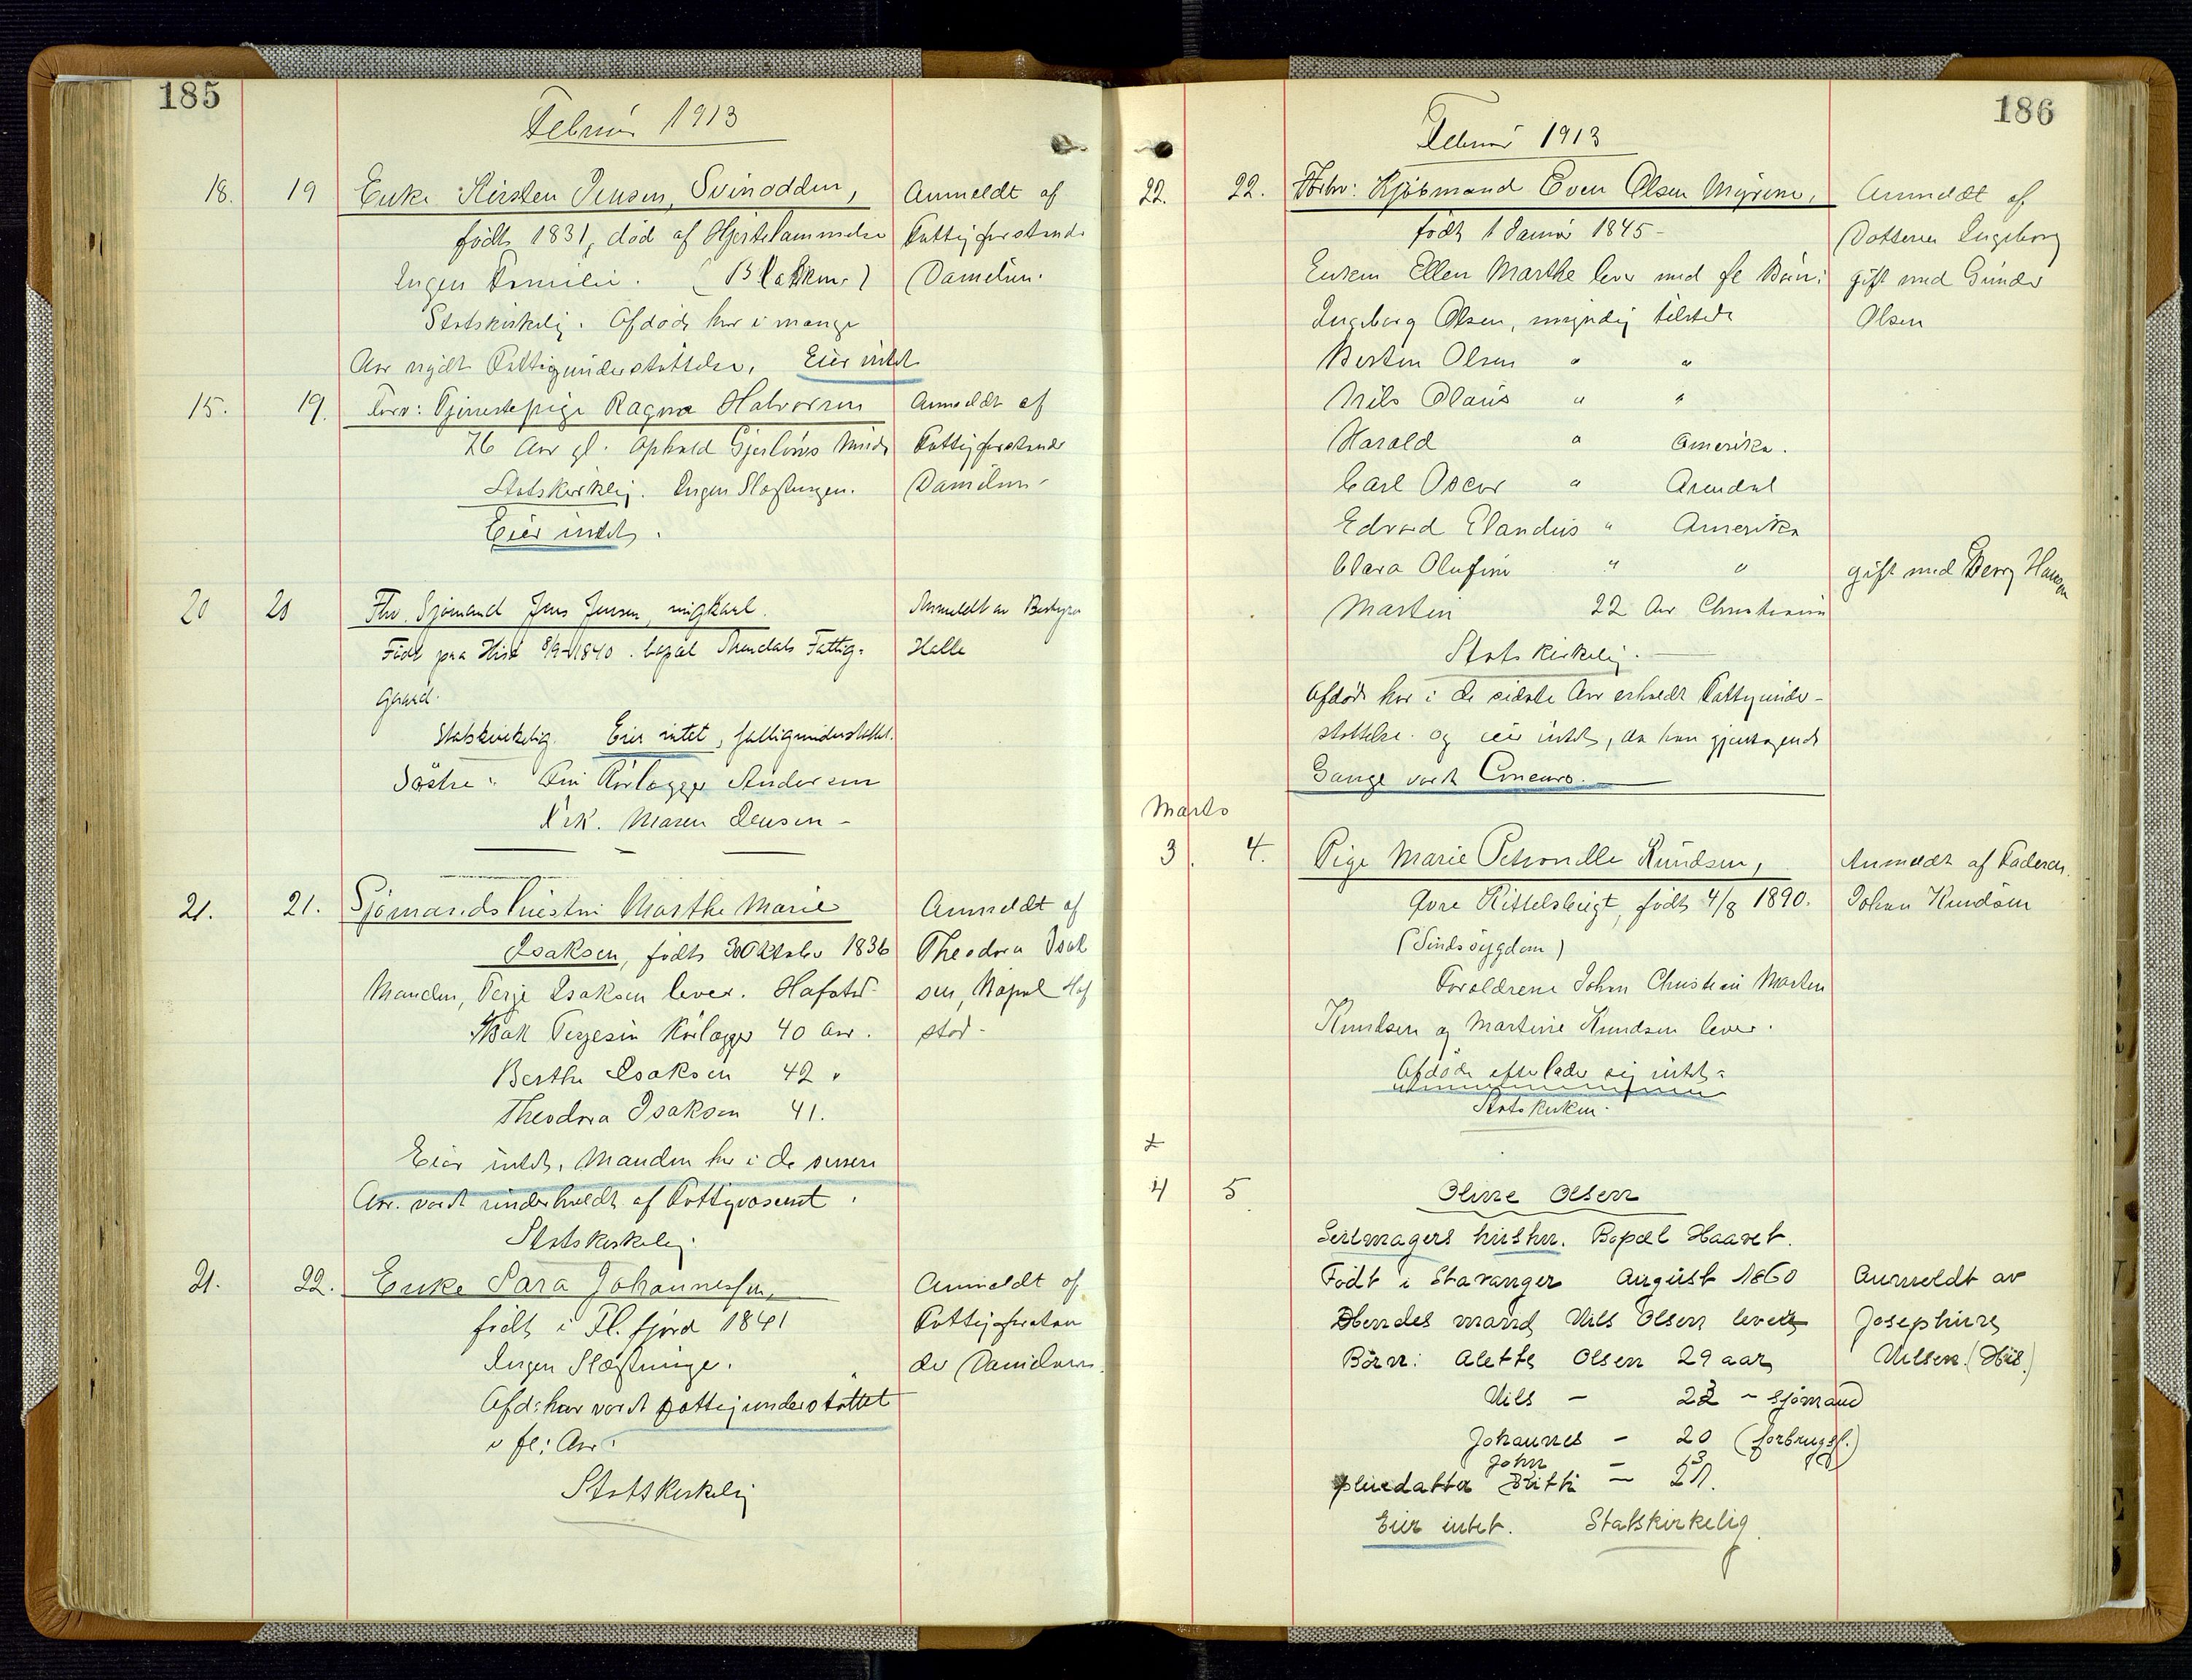 185
Februar 1913
18. 19 Enke Kirsten Jensen, Svinodden, Anmeldt af
født 1831, død af Hjertelammelse Fattigforstander
Ingen Familie. Danielsen.
Statskirkelig. Afdøde har i mange
Aar nydt Fattigunderstøttelse. Eier intet
15. 19. Forv: Tjenestepige Ragna Halvorsen Anmeldt af
76 Aar gl. Ophold Fattigforstander
Statskirkelig. Ingen Slægtninger. Danielsen
Eier intet.
20 20 Fhv. Sjømand Jens Jensen, ungkarl. Anmeldt av Bestyrer
Født paa Hisø 8/9-1840. bopæl Arendals Fattig- Helle
gaard.
Statskirkelig. Eier intet, fattigunderstøttet.
Søstre: Andersen
Frk. Maren Jensen -
21. 21. Sjømandshustru Marthe Marie Anmeldt af
Isaksen, født 30 Oktober 1836 Theodora Isak
Manden, Terje Isaksen lever. Hafstad sen, Bopæl Haf
Isak Terjesen 40 Aar. stad-
Berthe Isaksen 42 "
Theodora Isaksen 41.
Eier intet, Manden har i de senere
Aar vært underholdt af Fattigvæsenet.
Statskirkelig.
21. 22. Enke Sara Johannessen, Anmeldt af
født i Fl.fjord 1841 Fattigforstan
Ingen Slægtninge. der Danielsen.
Afd: har vært fattigunderstøttet
i fl: Aar.
Statskirkelig
186
Februar 1913
22. 22. Forhv: Kjøbmand Even Olsen Myrene, Anmeldt af
født 1 Januar 1845- Datteren Ingeborg
Enken Ellen Marthe lever med fl Børn: gift med Gunder
Ingeborg Olsen, myndig tilstede Olsen
Bertin Olsen " "
Nils Olaus " "
Harald " Amerika.
Carl Oscar " Arendal
Edvard Elandius " Amerika
Clara Olufine " " gift med Hansen
Martin 22 Aar Christiania
Statskirkelig.
Afdøde har i de sidste Aar erholdt Fattigunder-
støttelse og eier intet, da han gjentagende
Gange vært Concurs.
Marts
3. 4. Pige Marie Petronelle Knudsen, Anmeldt af Faderen
Øvre Kittelsbugt, født 4/8 1890. Johan Knudsen
(Sindssygdom)
Forældrene Johan Christian Marten
Knudsen og Martine Knudsen lever.
Afdøde efterlader sig intet.
Statskirken.
4 5 Oline Olsen
Seilmagers hustru. Bopæl Haavet.
Født i Stavanger August 1860 Anmeldt av
Hendes mand Nils Olsen lever Josephine
Børn: Alette Olsen 29 aar Nilsen (His.)
Nils - 22 - sjømand
Johannes - 20 (forbrugsf.)
John - 13
pleiedatter - 21.
Eier intet. Statskirkelig.